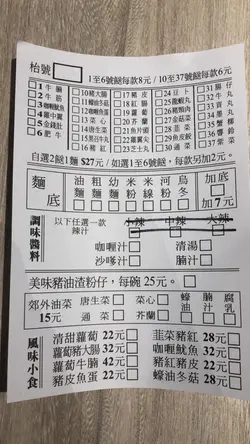 枱號
1至6號餸每款8元 / 10至37號餸每款6元
1 牛腩
2 牛筋
3 咖喱魷魚
4 雞中翼
5 金錢肚
6 肥牛
10 豬大腸
11 蠔油冬菇
12 豬紅
13 菜心
14 唐生菜
15 黑白牛丸
16 豬紅
17 豬皮
18 紅腸
19 蘿蔔
20 芥蘭
21 魚片頭
22 炸雞肉丸
23 芝士丸
24 豆卜
25 龍蝦丸
26 豬頸肉
27 金菇菜
28 韮菜
29 墨魚丸
30 通菜
31 腸仔
32 牛丸
33 貢丸
34 墨丸
35 蟹柳
36 魚蛋
37 炸醬
自選2餸1麵 $27元 / 如選1至6號餸,每款另加2元。
麵底
油麵
粗麵
幼麵
米粉
米線
河粉
烏冬
加底
加7元
調味醬料
以下任選一款
辣汁
小辣
中辣
大辣
咖喱汁
清湯
沙嗲汁
腩汁
美味豬油渣粉仔,每碗 25元。
郊外油菜
15元
唐生菜
菜心
通菜
芥蘭
蠔油
腩汁
腐乳
風味小食
清甜蘿蔔 22元
韮菜豬紅 28元
蘿蔔豬大腸 32元
咖喱魷魚 32元
蘿蔔牛腩 42元
豬紅豬皮 22元
豬皮魚蛋 22元
蠔油冬菇 28元